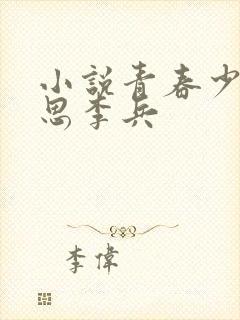 小說青春少
思李兵
李偉